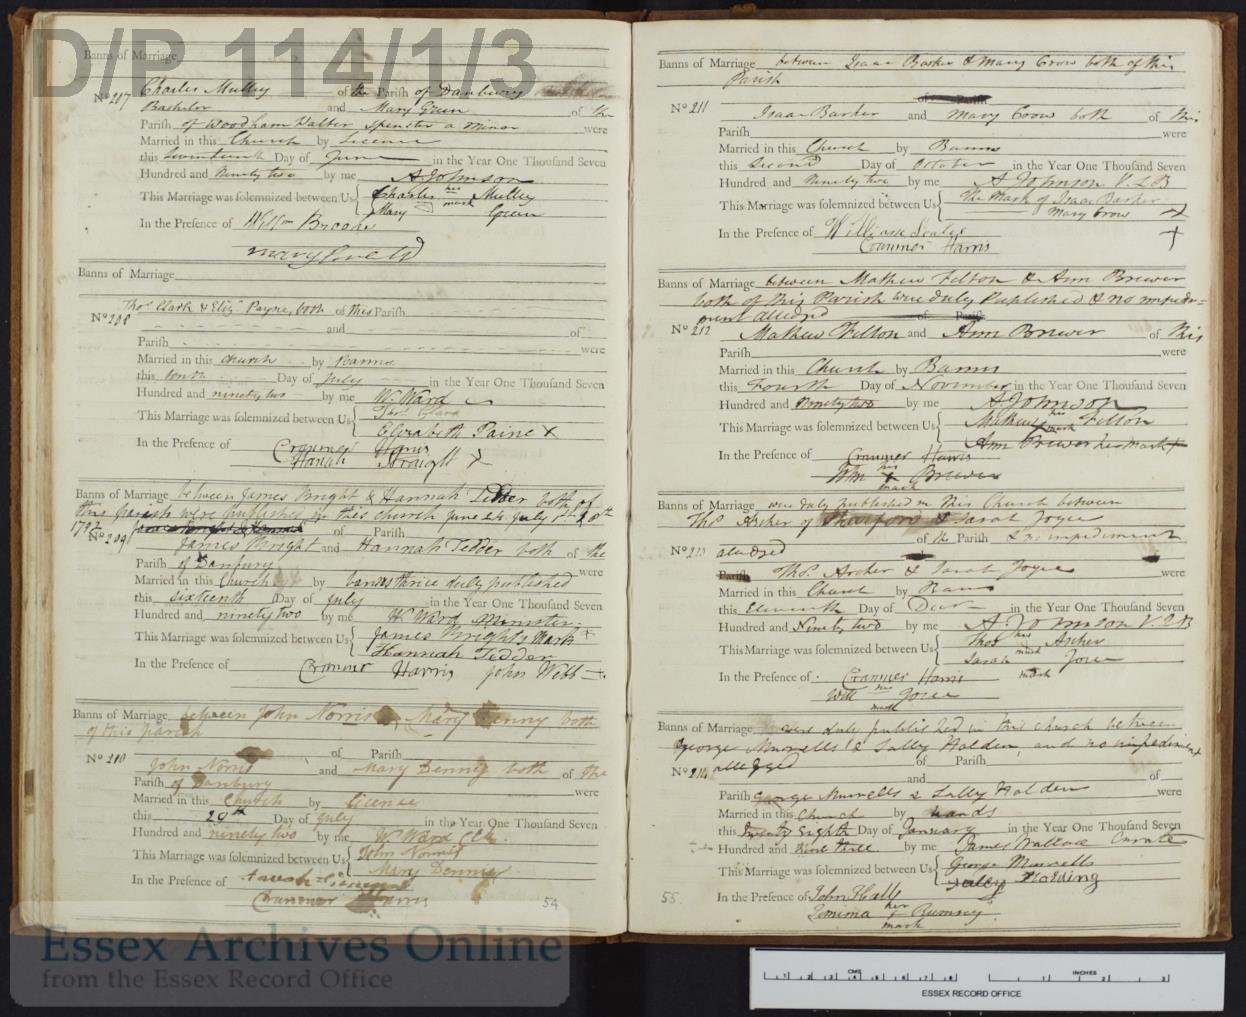 D/P 114/1/3
Banns of Marriage
No 207 Charles Mulley of the Parish of Danbury
Bachelor and Mary Green of the
Parish of Woodham Walter Spinster a Minor were
Married in this Church by Licence
this Seventeenth Day of June in the Year One Thousand Seven
Hundred and Ninety two by me A. Johnson
This Marriage was solemnized between Us Charles his mark Mulley
Mary Green
In the Presence of Willm
Banns of Marriage
Thos. Clark & Eliz. Payne, both of this Parish
No 208 and of
Parish were
Married in this church by Banns
this tenth Day of July in the Year One Thousand Seven
Hundred and ninety two by me W. Ward
This Marriage was solemnized between Us Thos. Clark
Elizabeth Paine X
In the Presence of Cranmer Harris
Hanah X
Banns of Marriage between James Bright & Hannah Tedder both of
this parish were published in this church June 24 July 1st & 8th
1792 of Parish
No 209 James Bright and Hannah Tedder both of the
Parish of Danbury were
Married in this Church by banns thrice duly published
this sixteenth Day of July in the Year One Thousand Seven
Hundred and ninety two by me W. Ward Minister
This Marriage was solemnized between Us James Bright's Mark +
Hannah Tedder
In the Presence of Cranmer Harris John Webb +
Banns of Marriage between John Norris & Mary Denny both
of this parish
of Parish
No 210 John Norris and Mary Denny both of the
Parish of Danbury were
Married in this Church by Licence
this 29th Day of July in the Year One Thousand Seven
Hundred and ninety two by me W. Ward Clk
This Marriage was solemnized between Us John Norris
Mary Denny
In the Presence of
Cranmer Harris
54
Banns of Marriage between Isaac Barker & Mary Crow both of this
Parish
of Parish
No 211 Isaac Barker and Mary Crow both of this
Parish were
Married in this Church by Banns
this Second Day of October in the Year One Thousand Seven
Hundred and Ninety two by me A. Johnson V. D B
This Marriage was solemnized between Us The Mark of Isaac Barker X
Mary Crow +
In the Presence of William
Cranmer Harris
Banns of Marriage between Mathew Felton & Ann Brewer
both of this Parish were duly Published & no impedi=
ment alledged of Parish
No 212 Mathew Felton and Ann Brewer of this
Parish were
Married in this Church by Banns
this Fourth Day of November in the Year One Thousand Seven
Hundred and Ninety two by me A. Johnson
This Marriage was solemnized between Us Mathew his X mark Felton
Ann Brewer her mark +
In the Presence of Cranmer Harris
John his X mark Brewer
Banns of Marriage were duly Published in this Church between
Thos. Archer of & Sarah Joyce
of the Parish & no impediment
No 213 alledged
Parish Thos. Archer & Sarah Joyce were
Married in this Church by Banns
this Eleventh Day of Decr in the Year One Thousand Seven
Hundred and Ninety two by me A. Johnson V. D B
This Marriage was solemnized between Us Thos his mark Archer
Sarah Joyce
mark
In the Presence of Cranmer Harris
Will his mark Joyce
Banns of Marriage were duly published in this church between
George Murrells & Sally Holden, and no impediment
alledged of Parish
No 214 and of
Parish George Murrells & Sally Holden were
Married in this Church by banns
this Twenty Eighth Day of January in the Year One Thousand Seven
Hundred and Nine three by me James Wallace Curate
This Marriage was solemnized between Us George Murrells
Sally Holding
In the Presence of John Hall
Jemima her + mark Rumsey
55
Essex Archives Online
from the Essex Record Office
CMS
1 2 3 4 5 6 7 8
INCHES
1 2 3
ESSEX RECORD OFFICE